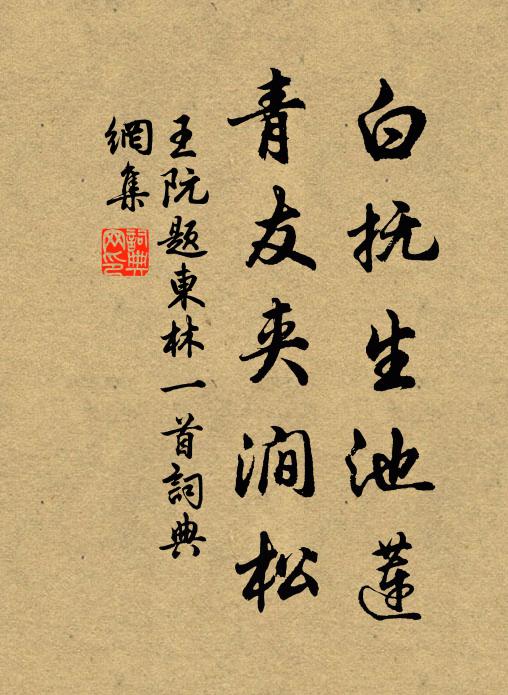 白抚生池莲
青友夹涧松
王阮题東林一首詞典
網集
詞典網印